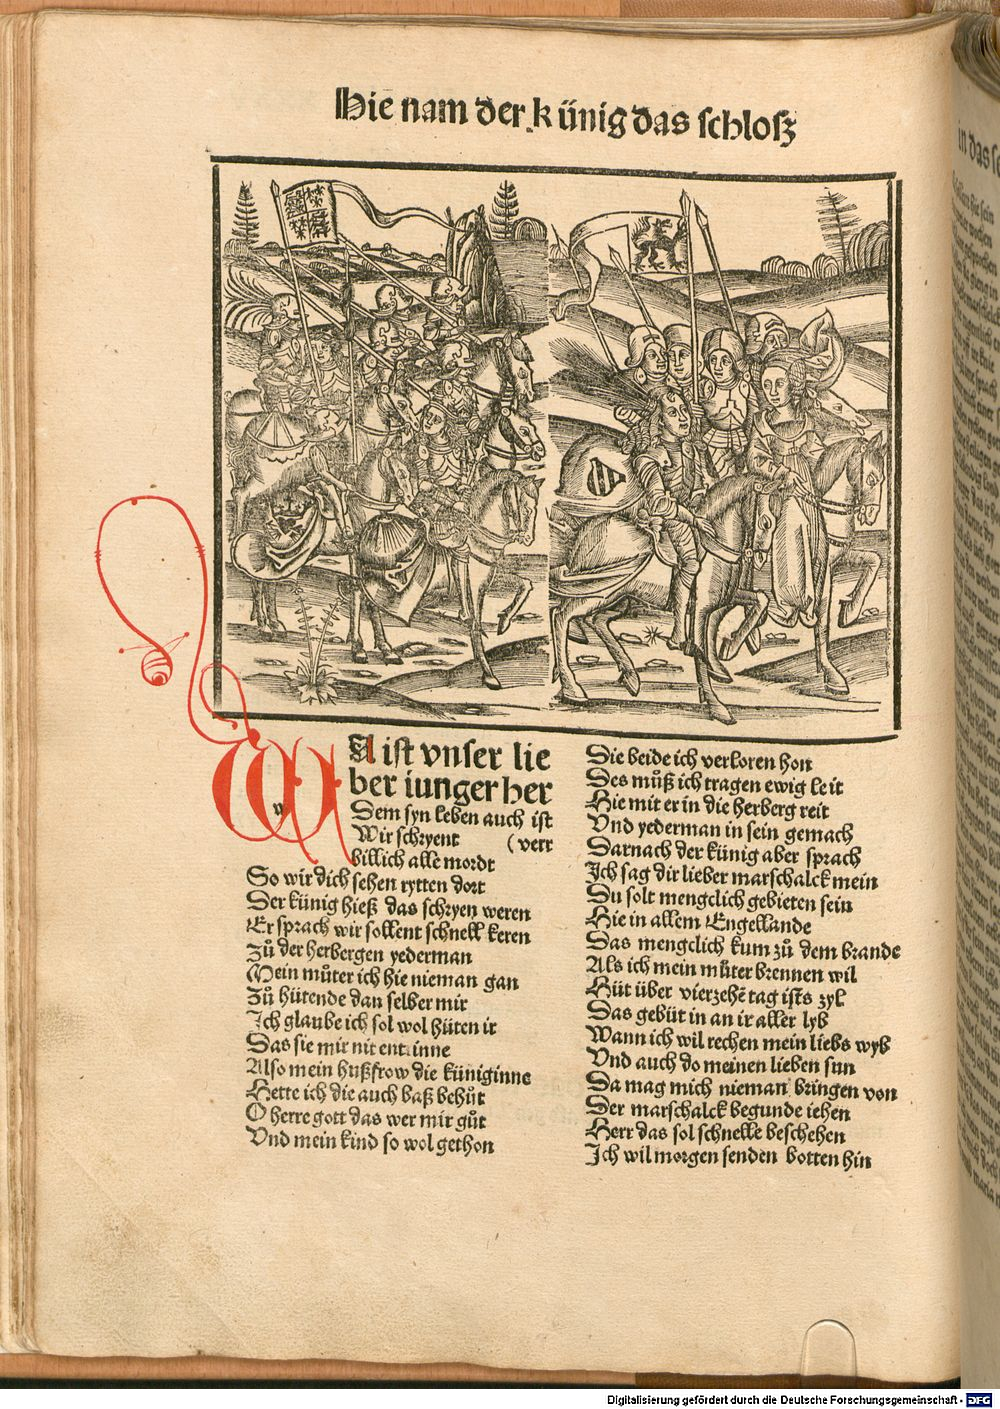 Hie nam der künig das schlosz
WA ist vnser lie
ber iunger her
Dem syn leben auch ist
Wir schryent (verr
billich alle mordt
So wir dich sehen rytten dort
Der künig hieß das schryen weren
Er sprach wir sollent schnell keren
Zů der herbergen yederman
Mein můter ich hie nieman gan
Zů hütende dan selber mir
Ich glaube ich sol wol hüten ir
Das sie mir nit entrinne
Also mein hußfrow die küniginne
Hette ich die auch baß behůt
O herre gott das wer mir gůt
Vnd mein kind so wol gethon
Die beide ich verloren hon
Des můß ich tragen ewig leit
Hie mit er in die herberg reit
Vnd yederman in sein gemach
Darnach der künig aber sprach
Ich sag dir lieber marschalck mein
Du solt mengclich gebieten sein
Hie in allem Engellande
Das mengclich kum zů dem brande
Als ich mein můter brennen wil
Hüt über vierzehē tag ists zyl
Das gebüt in an ir aller lyb
Wann ich wil rechen mein liebs wyb
Vnd auch do meinen lieben sun
Da mag mich nieman bringen von
Der marschalck begunde iehen
Herr das sol schnelle beschehen
Ich wil morgen senden botten hin
in das
Digitalisierung gefördert durch die Deutsche Forschungsgemeinschaft - DFG